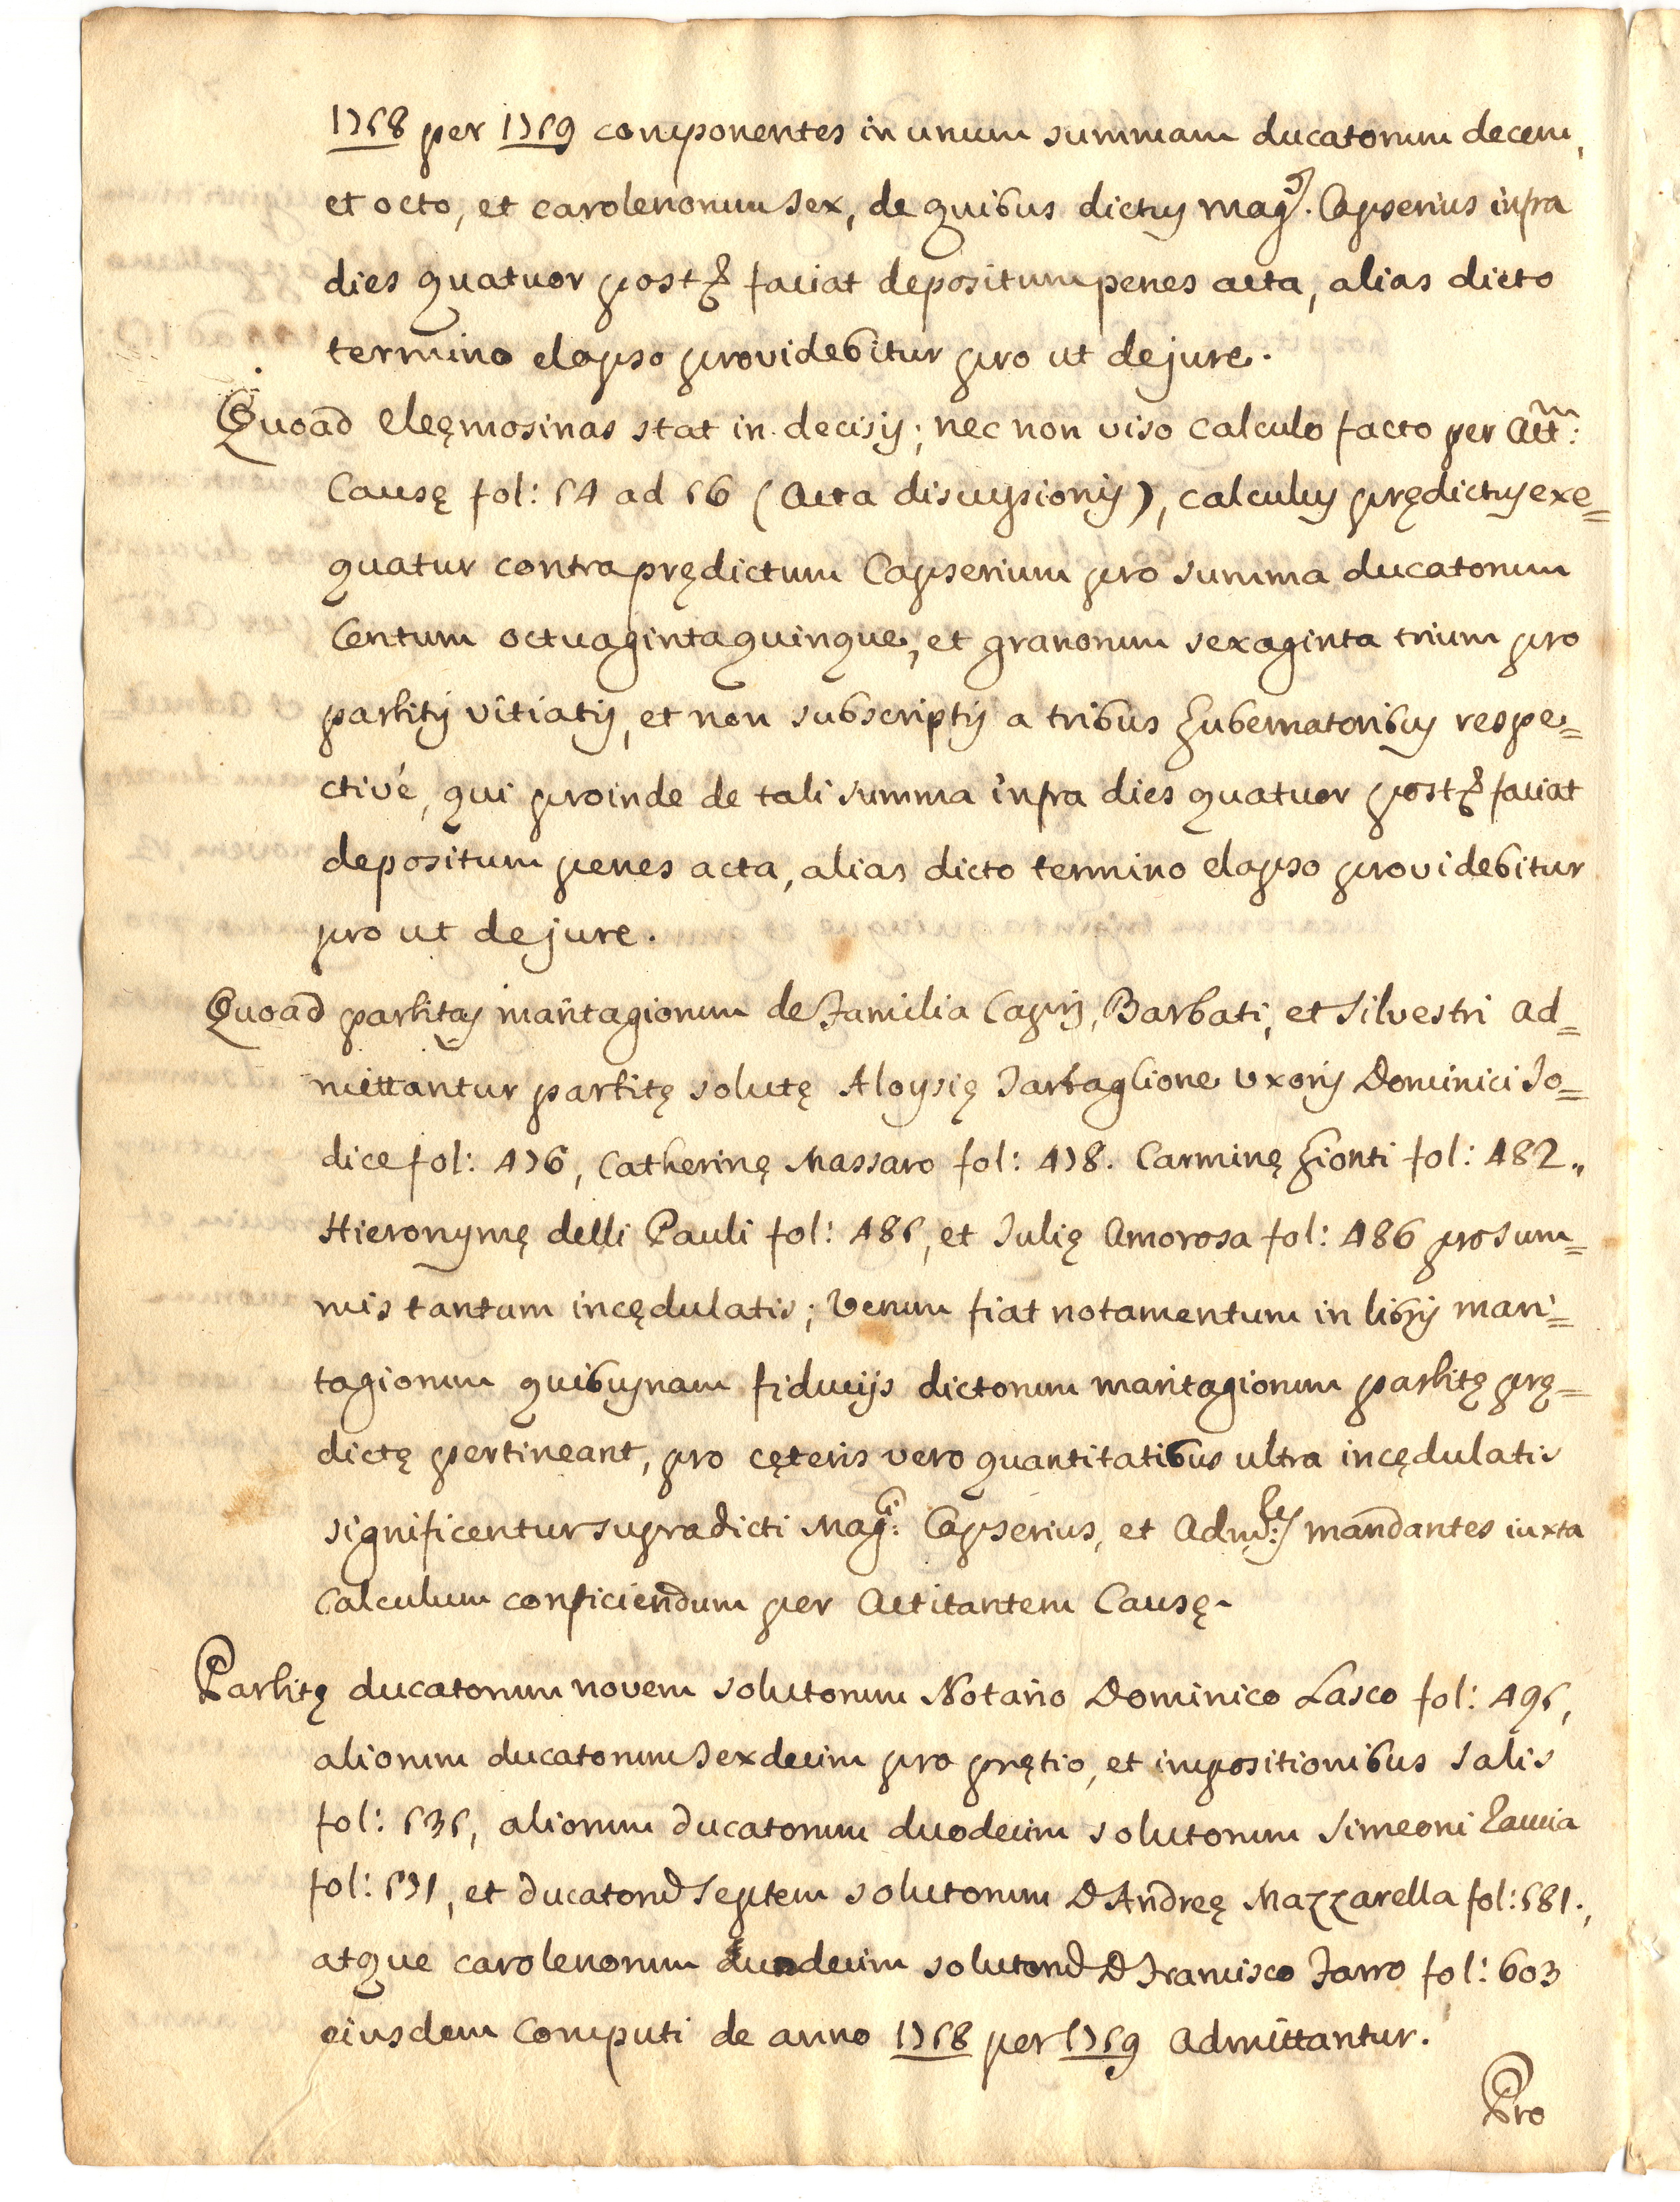 1758 per 1759 componentes in unum summam ducatorum decem,
et octo, et carolenorum sex, de quibus dictus mag.^s Capserius infra
dies quatuor post &c faciat depositum penes acta, alias dicto
termino elapso providebitur pro ut de jure.
Quoad eleęmosinas stat in decisis; nec non viso calculo facto per Act^m:
Causę fol: 54 ad 56 (Acta discussionis), calculus prędictus exe=
quatur contra prędictum Capserium pro summa ducatorum
Centum octuaginta quinque, et granorum sexaginta trium pro
partitis vitiatis, et non subscriptis a tribus Gubernatoribus respe=
ctivé, qui proinde de tali summa infra dies quatuor post &c faciat
depositum penes acta, alias dicto termino elapso providebitur
pro ut de jure.
Quoad partitas maritagiorum de Familia Capis, Barbati, et Silvestri ad=
mittantur partitę solutę Aloysię Tartaglione uxoris Dominici Jo=
dice fol: 476, Catherinę Massaro fol: 478. Carminę Gionti fol: 482,,
Hieronymę delli Pauli fol: 485, et Julię Amorosa fol: 486 pro sum=
mis tantum incędulatis; Verum fiat notamentum in libris mari=
tagiorum quibusnam fiducijs dictorum maritagiorum partitę prę=
dictę pertineant, pro cęteris vero quantitatibus ultra incędulatis
significentur supradicti Mag:^ci Capserius, et Adm:^res mandantes iuxta
Calculum conficiendum per Actitantem Causę.
Partitę ducatorum novem solutorum Notario Dominico Lasco fol: 495,
aliorum ducatorum sexdecim pro prętio, et impositionibus salis
fol: 535, aliorum ducatorum duodecim solutorum Simeoni Zaccia
fol: 571, et ducatorū septem solutorum D Andreę Mazzarella fol: 581.,
atque carolenorum duodecim solutorū D Francisco Farro fol: 603
eiusdem Computi de anno 1758 per 1759 Admittantur.
Pro